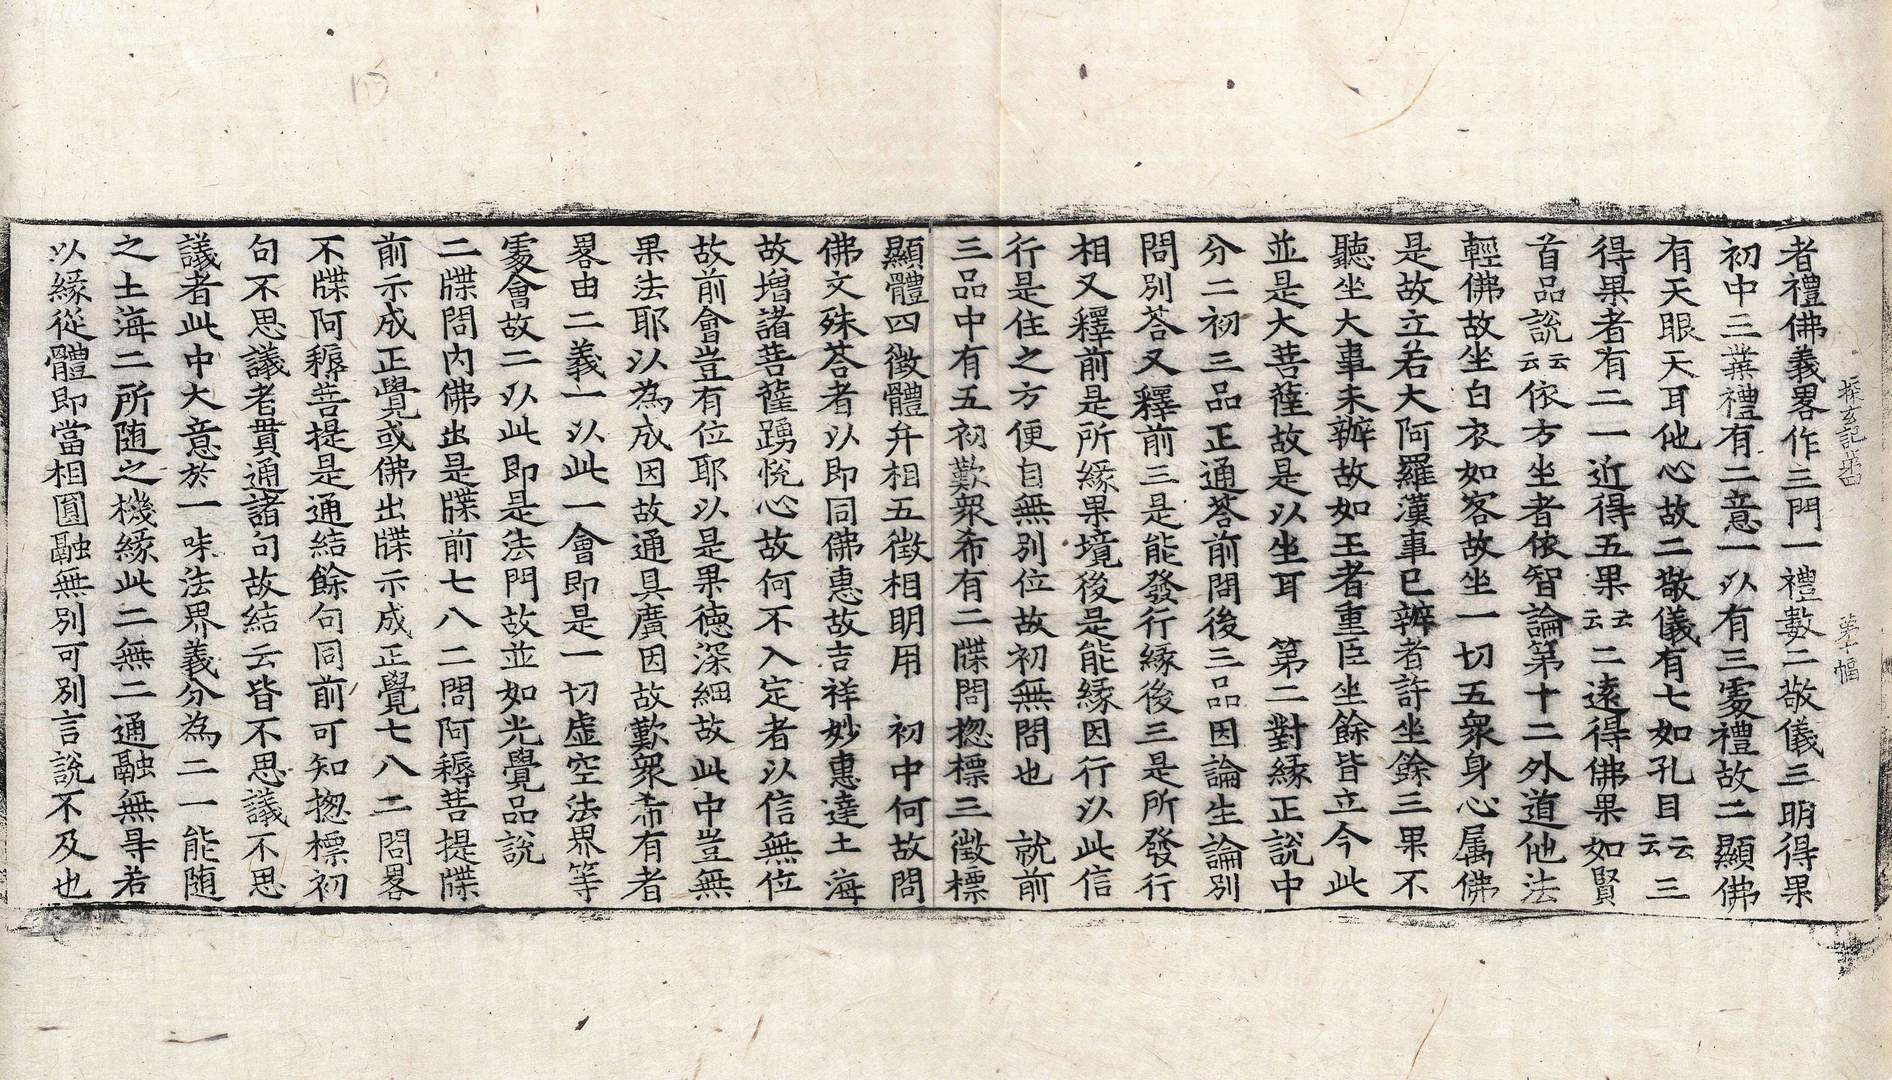 探玄記第四　第十幅
者禮佛義畧作三門一禮數二敬儀三明得果
初中三業禮有二意一以有三䖏禮故二顯佛
有天眼天耳他心故二敬儀有七如孔目云云三
得果者有二一近得五果云云二遠得佛果如賢
首品說云云依方坐者依智論第十二外道他法
輕佛故坐白衣如客故坐一切五衆身心属佛
是故立若大阿羅漢事已辦者許坐餘三果不
聽坐大事未辦故如王者重臣坐餘皆立今此
並是大菩薩故是以坐耳　第二對緣正說中
分二初三品正通荅前問後三品因論生論別
問別荅又釋前三是能發行緣後三是所發行
相又釋前是所緣果境後是能緣因行以此信
行是住之方便自無別位故初無問也　就前
三品中有五初歎衆希有二牒問揔標三徵標
顯體四徵體弁相五徵相明用　初中何故問
佛文殊荅者以即同佛惠故吉祥妙惠達土海
故增諸菩薩踴悅心故何不入定者以信無位
故前會豈有位耶以是果德深細故此中豈無
果法耶以為成因故通具廣因故歎衆希有者
畧由二義一以此一會即是一切虛空法界等
䖏會故二以此即是法門故並如光覺品說
二牒問內佛出是牒前七八二問阿耨菩提牒
前示成正覺或佛出牒示成正覺七八二問畧
不牒阿耨菩提是通結餘句同前可知揔標初
句不思議者貫通諸句故結云皆不思議不思
議者此中大意於一味法界義分為二一能随
之土海二所随之機緣此二無二通融無㝵若
以緣從體即當相圓融無別可別言說不及也